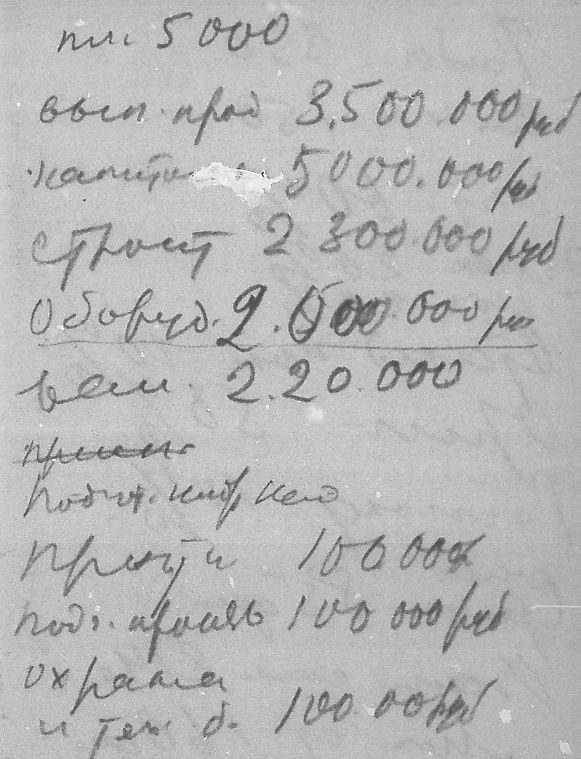 пл. 5 000
вып. прод 3.500.000 руб
капит 5000.000 руб
строит 2 300.000 руб
Оборуд. 2.500.000 руб
вел. 2.20.000
подгот. кадр
100 000
подг. 100 000 руб
охрана
и тех. б. 100.000 руб